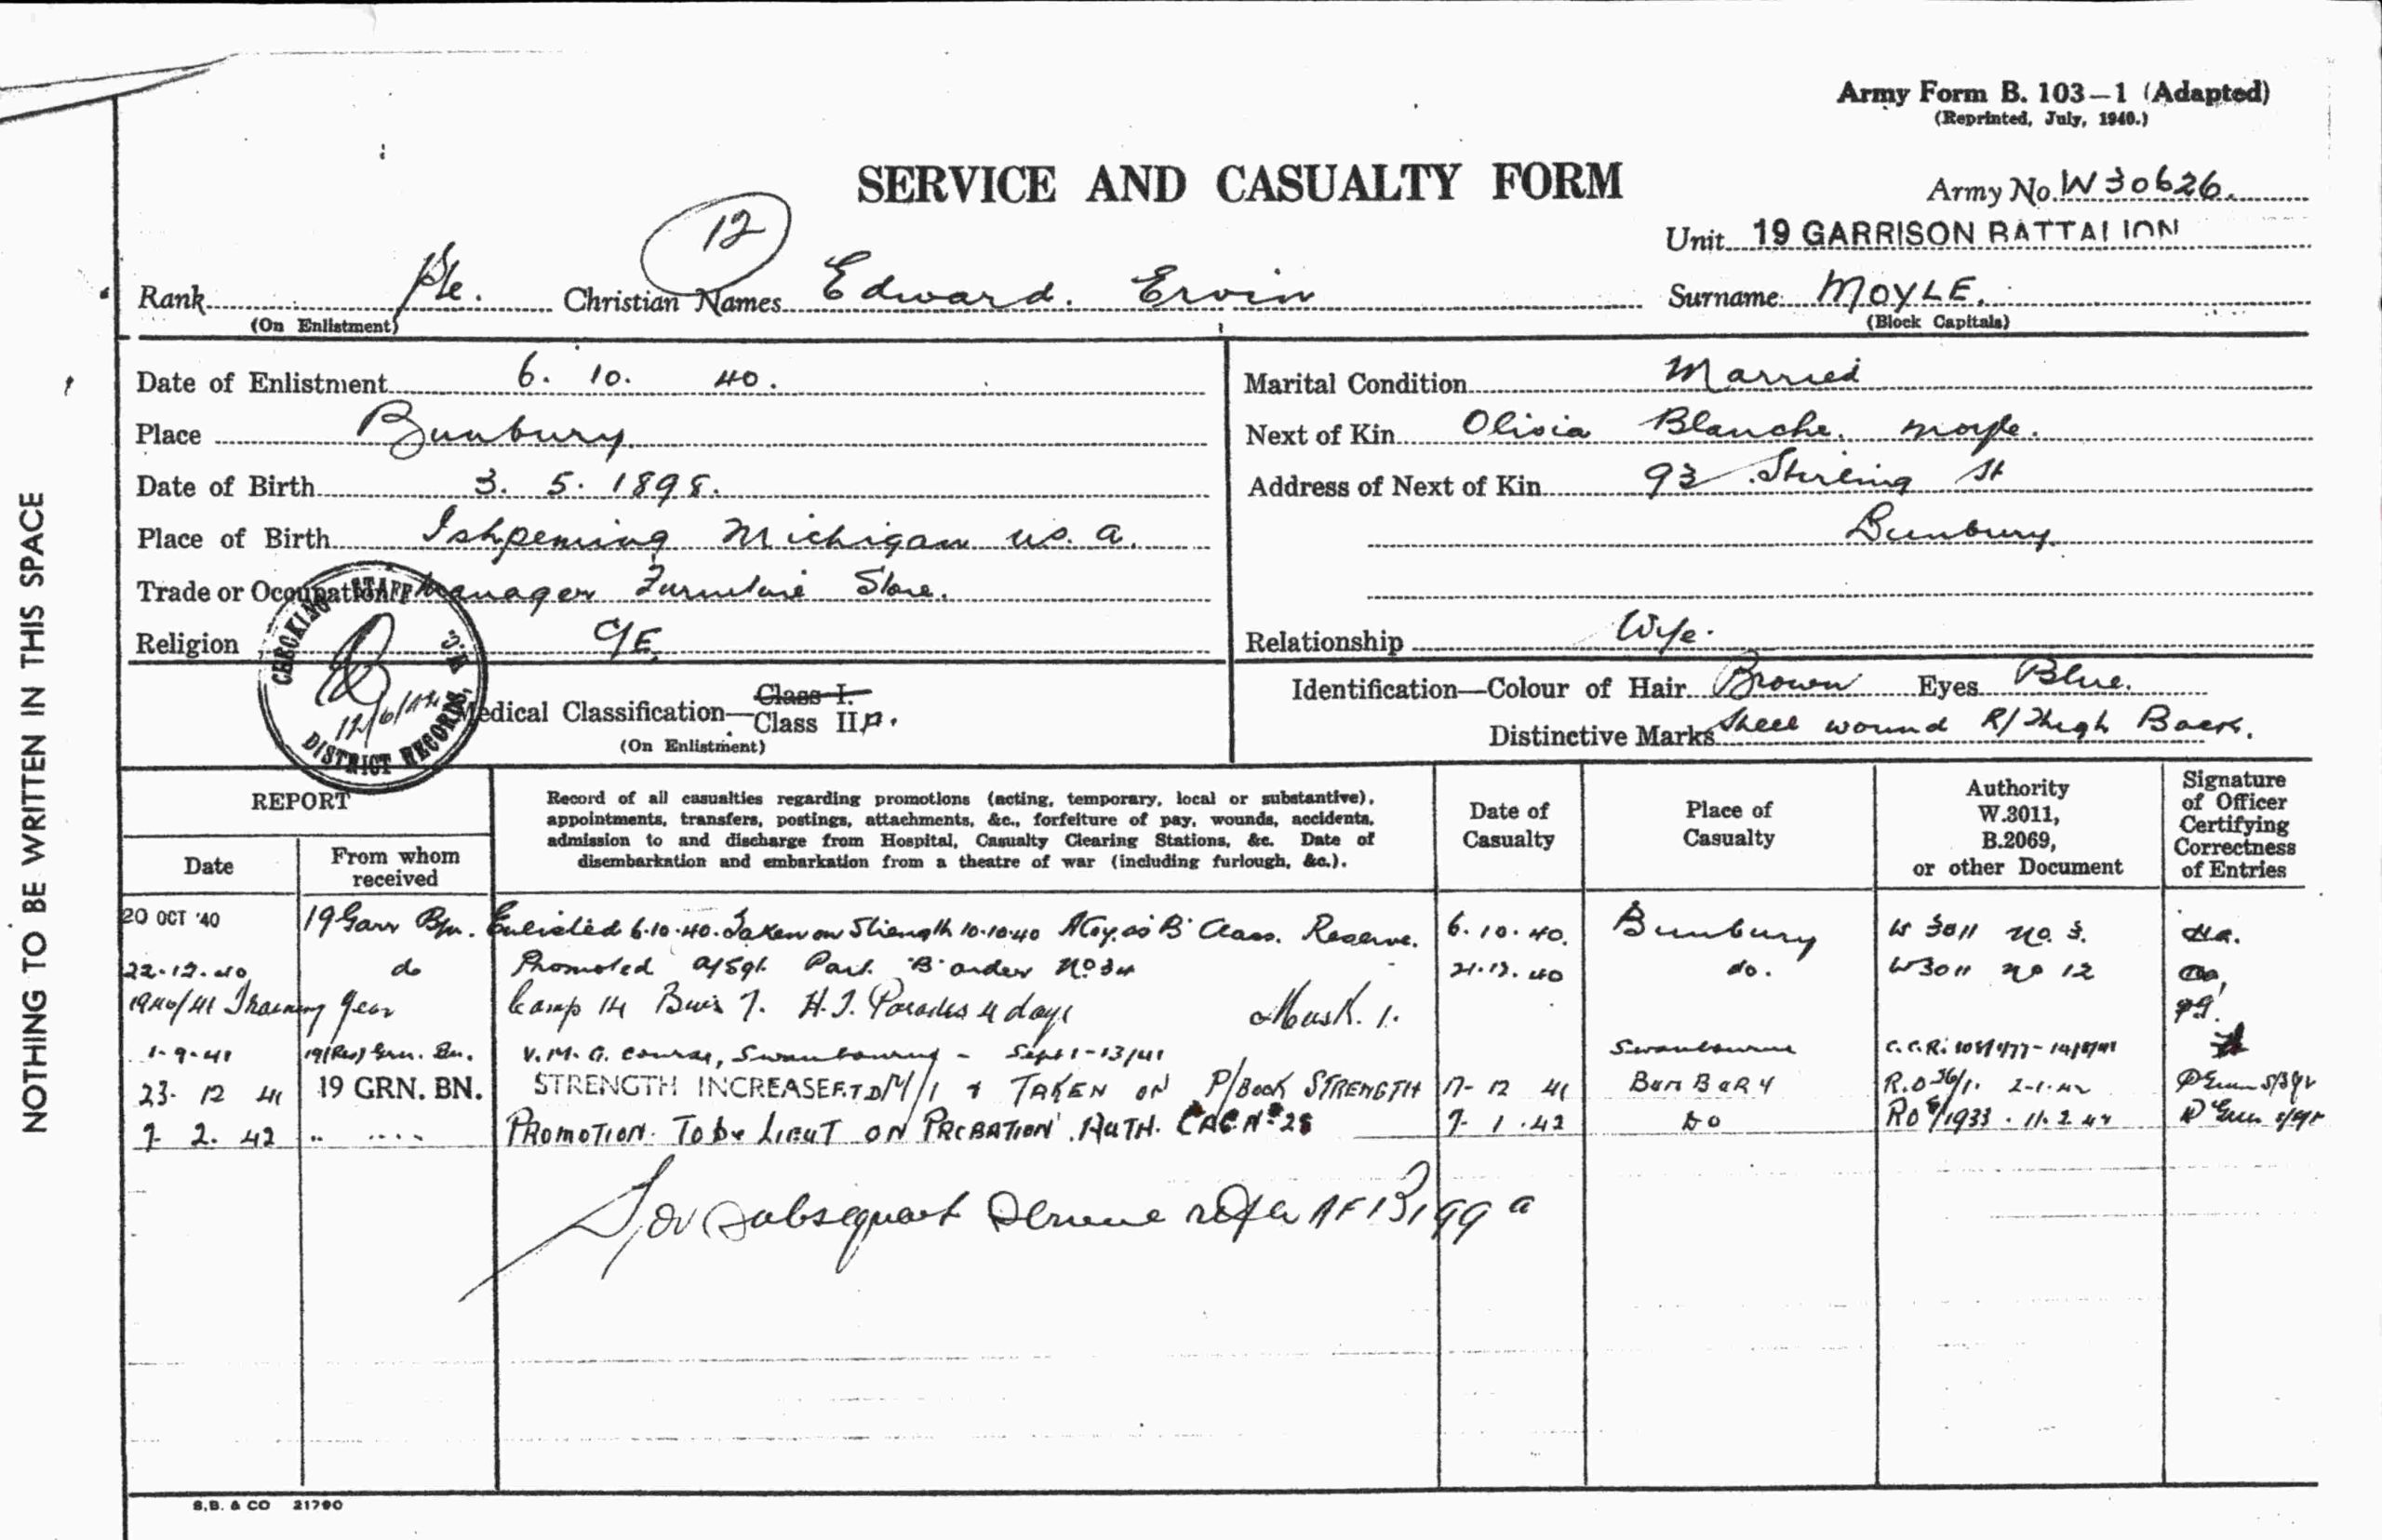 Army Form B. 103—1 (Adapted)
(Reprinted, July, 1940.)
SERVICE AND CASUALTY FORM
Army No. W30626.
12
Unit 19 GARRISON BATTALION
Rank Pte. Christian Names Edward. Ervin Surname MOYLE.
(On Enlistment) (Block Capitals)
Date of Enlistment 6. 10. 40.
Place Bunbury.
Date of Birth 3. 5. 1898.
Place of Birth Ishpeming Michigan U.S.A.
Trade or Occupation Manager Furniture Store.
Religion C/E.
Medical Classification—Class I.
Class II A.
(On Enlistment)
CHECKING STAFF
12/6/44
DISTRICT RECORDS,
Marital Condition Married
Next of Kin Olivia Blanche. Moyle.
Address of Next of Kin 93 Stirling St
Bunbury.
Relationship Wife.
Identification—Colour of Hair Brown Eyes Blue.
Distinctive Marks Shell wound R/Thigh Back.
NOTHING TO BE WRITTEN IN THIS SPACE
REPORT
Date
From whom
received
Record of all casualties regarding promotions (acting, temporary, local or substantive),
appointments, transfers, postings, attachments, &c., forfeiture of pay, wounds, accidents,
admission to and discharge from Hospital, Casualty Clearing Stations, &c. Date of
disembarkation and embarkation from a theatre of war (including furlough, &c.).
Date of
Casualty
Place of
Casualty
Authority
W.3011,
B.2069,
or other Document
Signature
of Officer
Certifying
Correctness
of Entries
20 OCT '40 19 Garr Bn. Enlisted 6.10.40. Taken on Strength 10.10.40 A Coy. as 'B' Class. Reserve. 6.10.40. Bunbury W 3011 No. 3.
22.12.40 do Promoted a/Sgt. Part 'B' order No 34 21.12.40 do. W3011 No 12
1940/41 Training Year Camp 14 Bivis 7. H.T. Parades 4 days Musk. 1.
1-9-41 19(Res) Grn. Bn. V.M.G. Course, Swanbourne - Sept 1-13/41 Swanbourne
23- 12 41 19 GRN. BN. STRENGTH INCREASE F.T.D. M/1 & TAKEN ON P/BOOK STRENGTH 17- 12 41 BUNBURY R.O 36/1. 2-1-42
7 2. 42 " .... PROMOTION. To be LIEUT ON PROBATION. AUTH. CRC No 28 7- 1 .42 DO RO 11.2.42
For subsequent Service refer AF B199a
S.B. & CO 21790